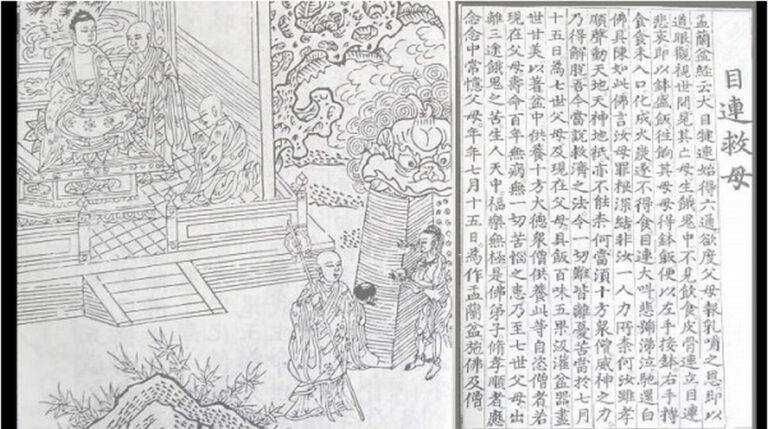 目連救母
盂蘭盆經云大目犍連始得六通欲度父母報乳哺之恩即以
道眼觀視世間見其亡母生餓鬼中不見飲食皮骨連立目連
悲哀即以鉢盛飯往餉其母母得鉢飯便以左手接鉢右手摶
食食未入口化成火炭遂不得食目連大叫悲號涕泣馳還白
佛具陳如此佛言汝母罪根深結非汝一人力所柰何汝雖孝
順聲動天地天神地祇亦不能柰何當須十方衆僧威神之力
乃得解脫吾今當說救濟之法令一切難皆離憂苦當於七月
十五日為七世父母及現在父母具飯百味五果汲灌盆器盡
世甘美以著盆中供養十方大德衆僧供養此等自恣僧者若
現在父母壽命百年無病無一切苦惱之患乃至七世父母出
離三途餓鬼之苦生人天中福樂無極是佛弟子脩孝順者應
念念中常憶父母年年七月十五日。為作盂蘭盆施佛及僧。